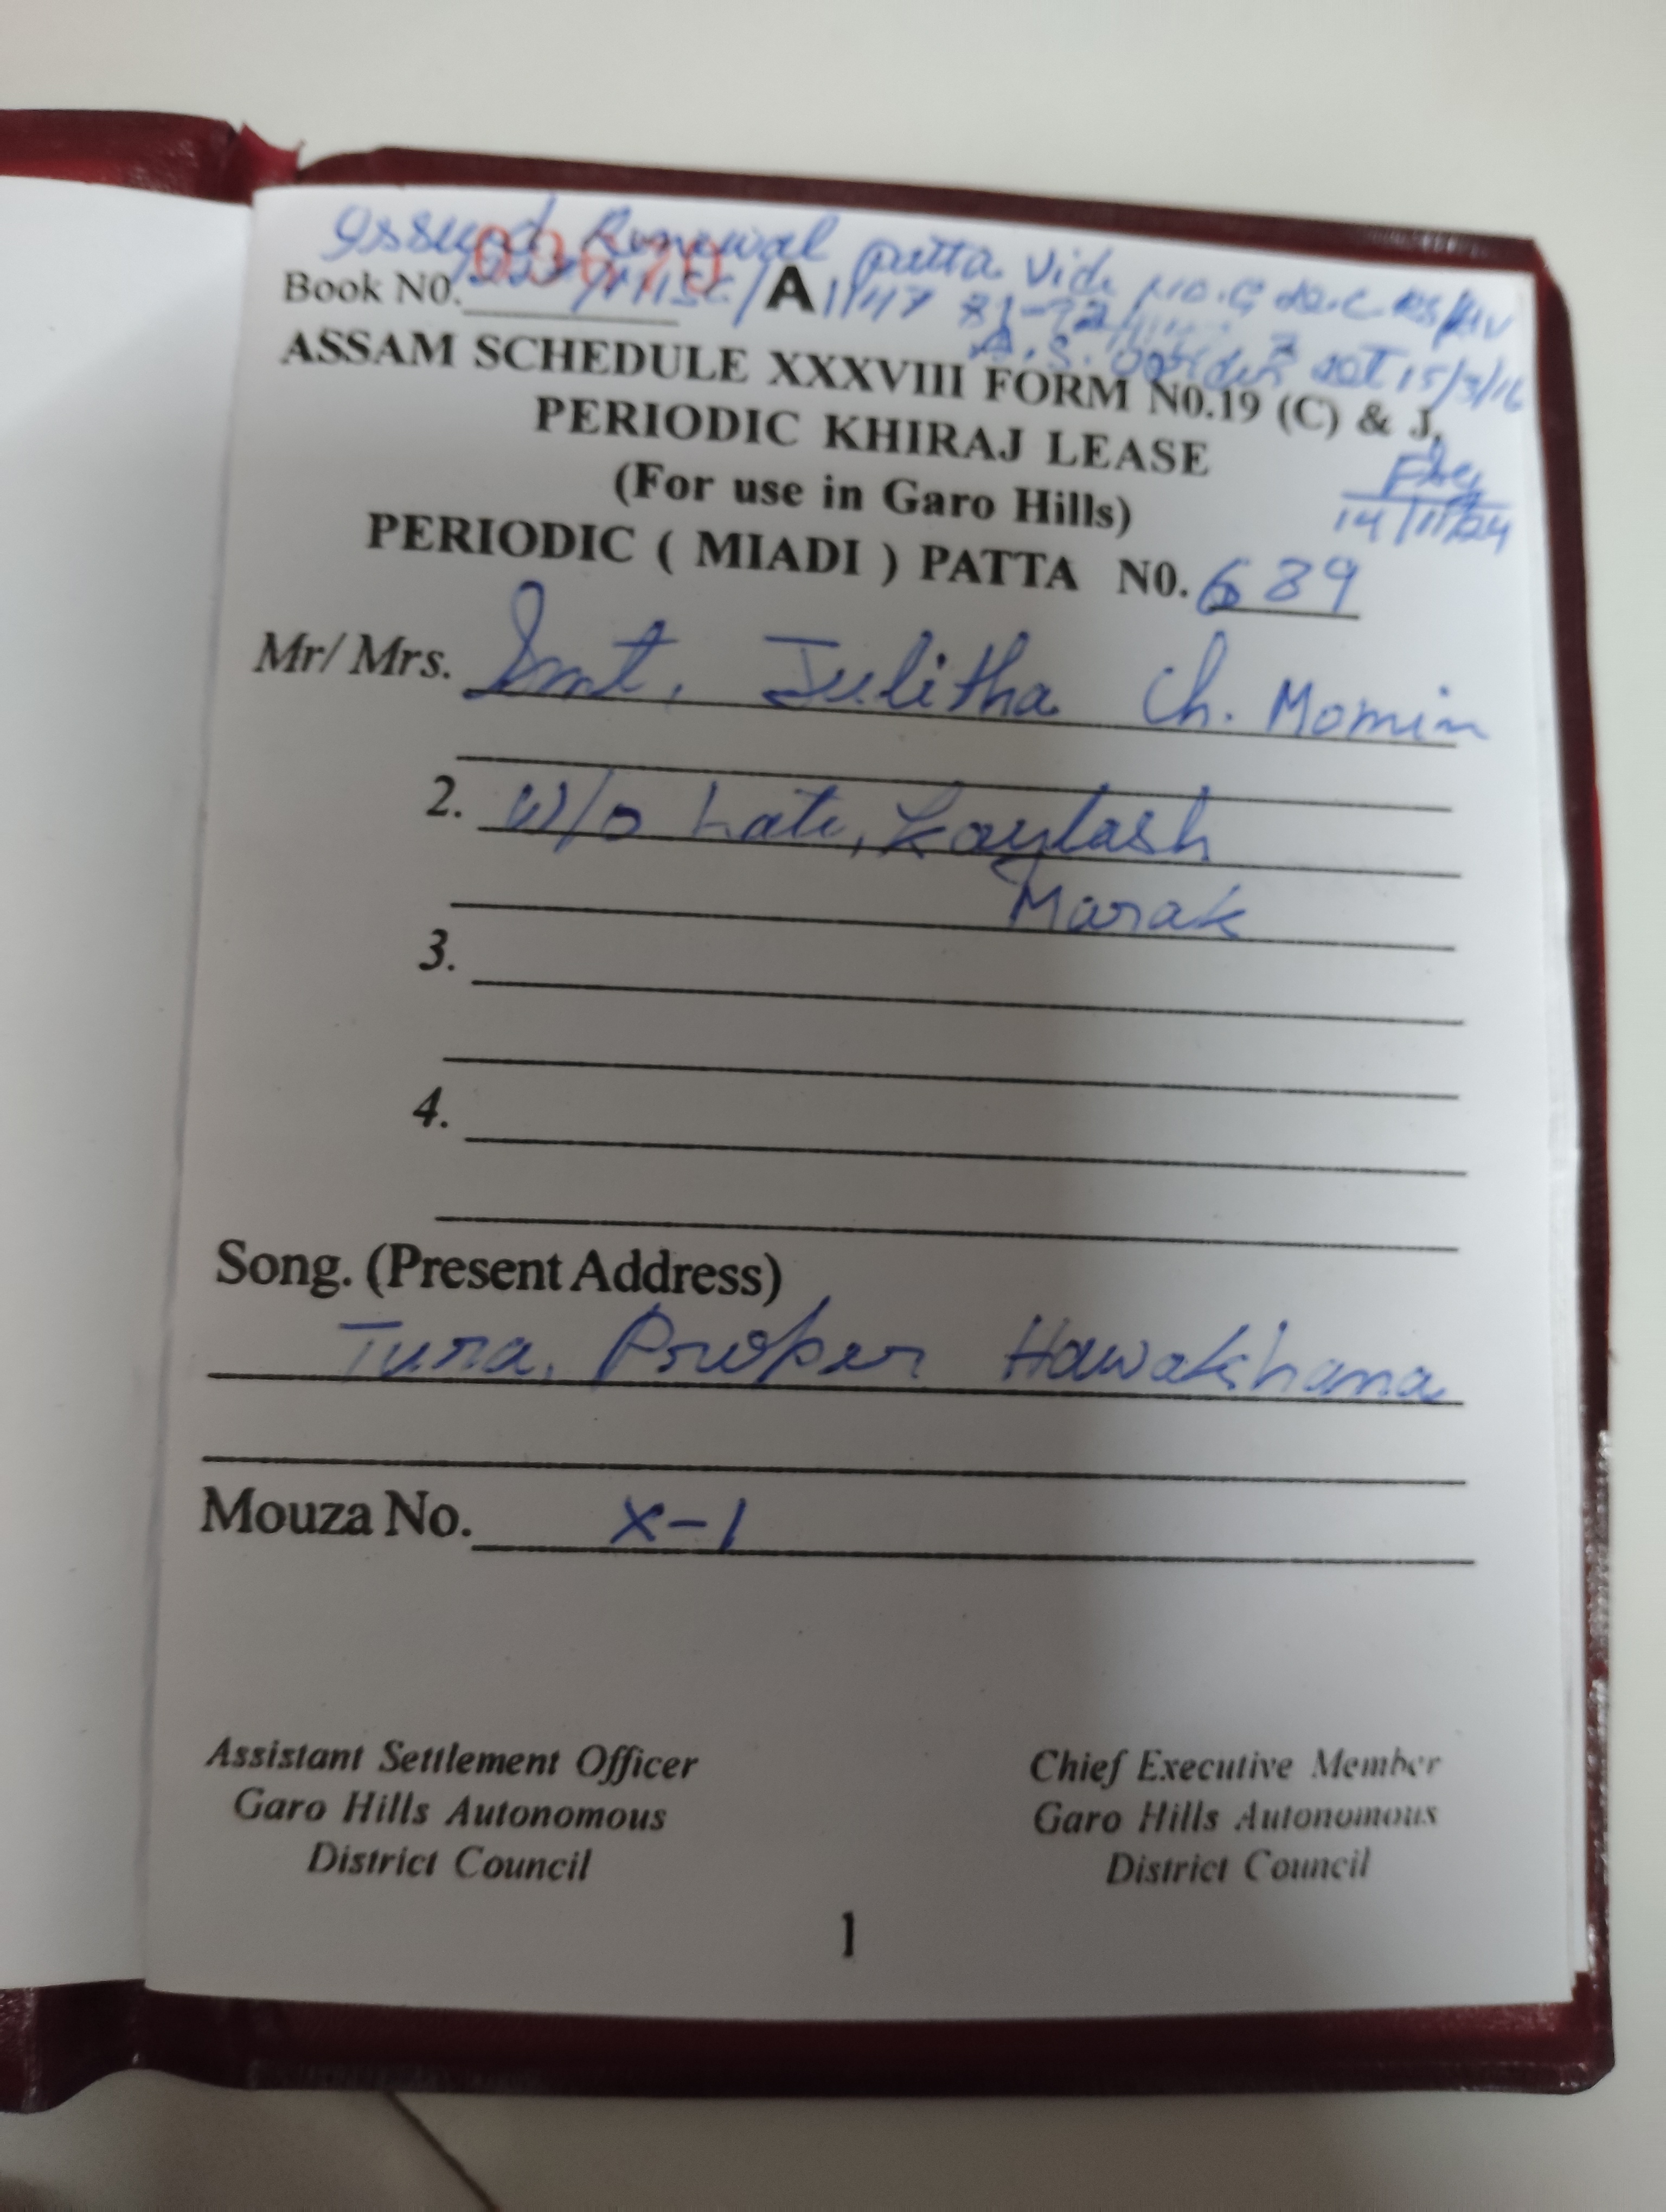 Issued Renewal patta vide No. G
Book N0. 03670 A
ASSAM SCHEDULE XXXVIII FORM N0.19 (C) & J,
PERIODIC KHIRAJ LEASE
(For use in Garo Hills)
14/11/24
PERIODIC ( MIADI ) PATTA N0. 689
Mr/ Mrs. Smt. Julitha Ch. Momin
2. W/o Late, Kaylash
Marak
3.
4.
Song. (Present Address)
Tura, Proper Hawakhana
Mouza No. X-1
Assistant Settlement Officer
Garo Hills Autonomous
District Council
Chief Executive Member
Garo Hills Autonomous
District Council
1